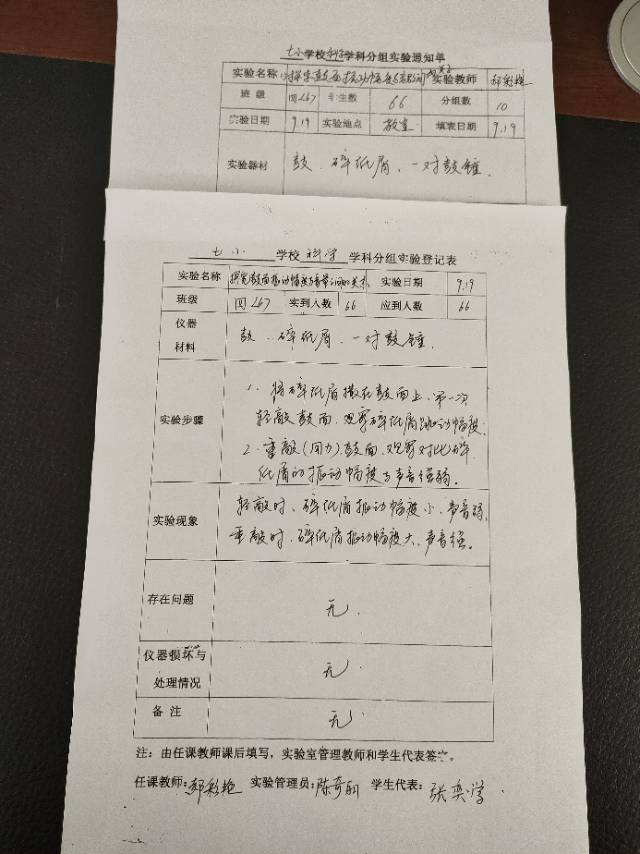 七小学校科学学科分组实验通知单
实验名称 探究鼓面振动幅度与音量间的关系 实验教师 郝彩艳
班级 四267 学生数 66 分组数 10
实验日期 9.19 实验地点 教室 填表日期 9.19
实验器材 鼓、碎纸屑、一对鼓锤.
七小 学校 科学 学科分组实验登记表
实验名称 探究鼓面振动幅度与音量间的关系 实验日期 9.19
班级 四267 实到人数 66 应到人数 66
仪器
材料 鼓、碎纸屑、一对鼓锤.
1. 将碎纸屑撒在鼓面上,第一次
实验步骤 轻敲鼓面,观察碎纸屑跳动幅度.
2. 重敲(用力)鼓面,观察对比碎
纸屑的振动幅度与声音强弱。
轻敲时、碎纸屑振动幅度小、声音弱,
实验现象 重敲时、碎纸屑振动幅度大、声音强。
存在问题 无.
仪器损坏与
处理情况 无.
备注 无.
注:由任课教师课后填写,实验室管理教师和学生代表签字。
任课教师:郝彩艳 实验管理员:陈奇 学生代表:张奕